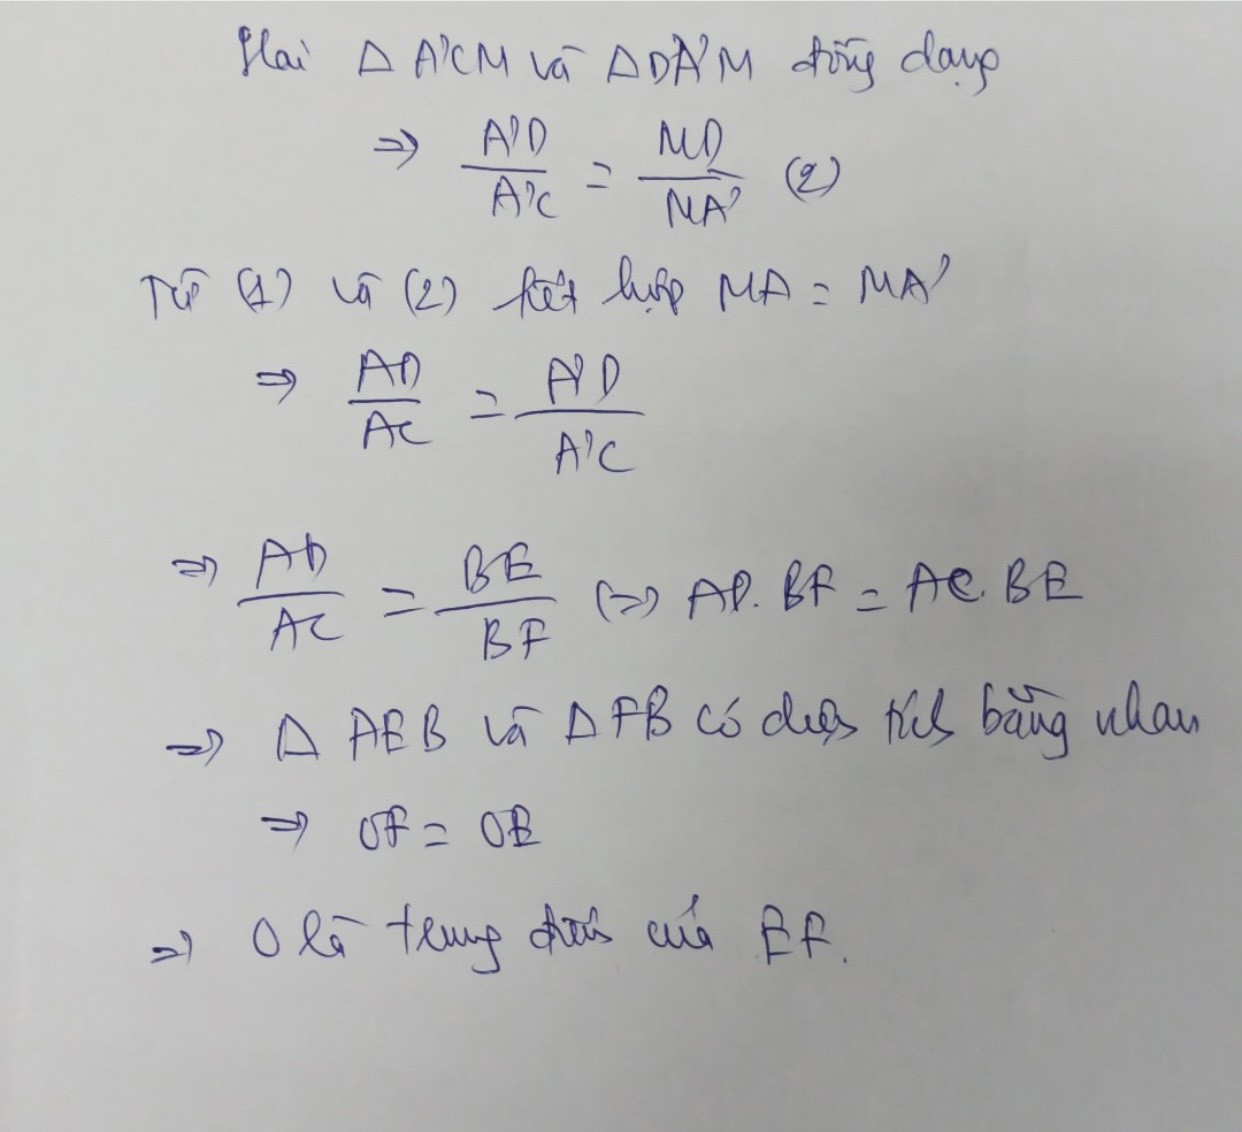 Hai Δ A'CM và ΔDA'M đồng dạng
⇒ A'D/A'C = MD/MA' (2)
Từ (1) và (2) kết hợp MA = MA'
⇒ AD/AC = A'D/A'C
⇒ AD/AC = BE/BF (⇒) AD. BF = AC. BE
⇒ Δ AEB và Δ FB có diện tích bằng nhau
⇒ OF = OE
⇒ O là trung điểm của EF.